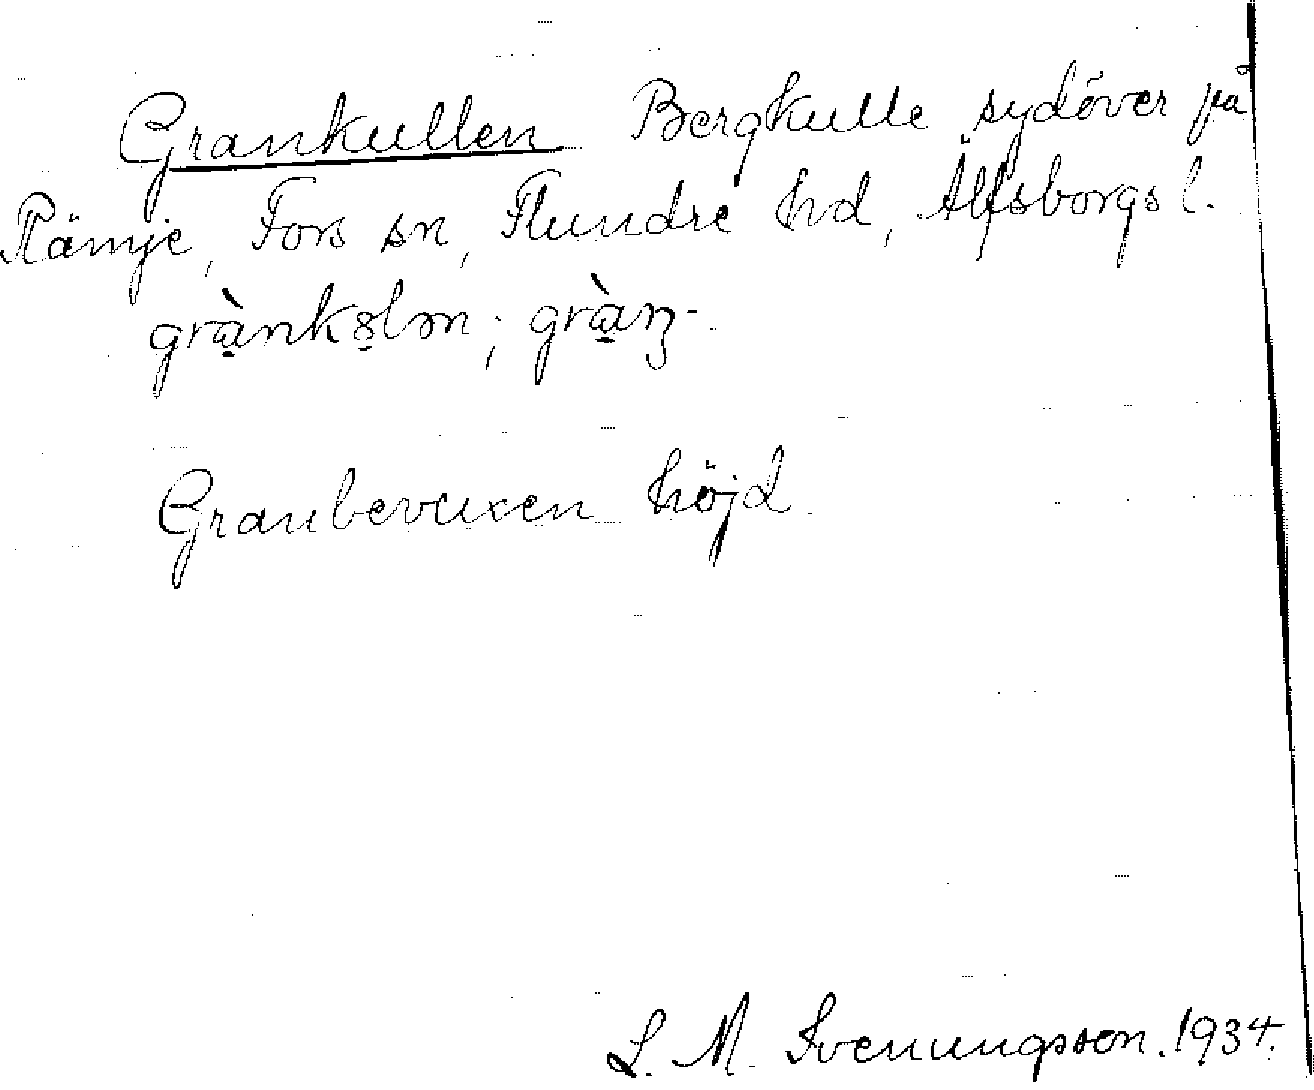 Grankullen Bergkulle sydöver på
Rämje, Fors sn, Flundre hd, Älfsborgs l.
grà̱nkꝍ̱lən; grà̱ŋ-.
Granbevuxen höjd.
L. M. Svenungsson. 1934.